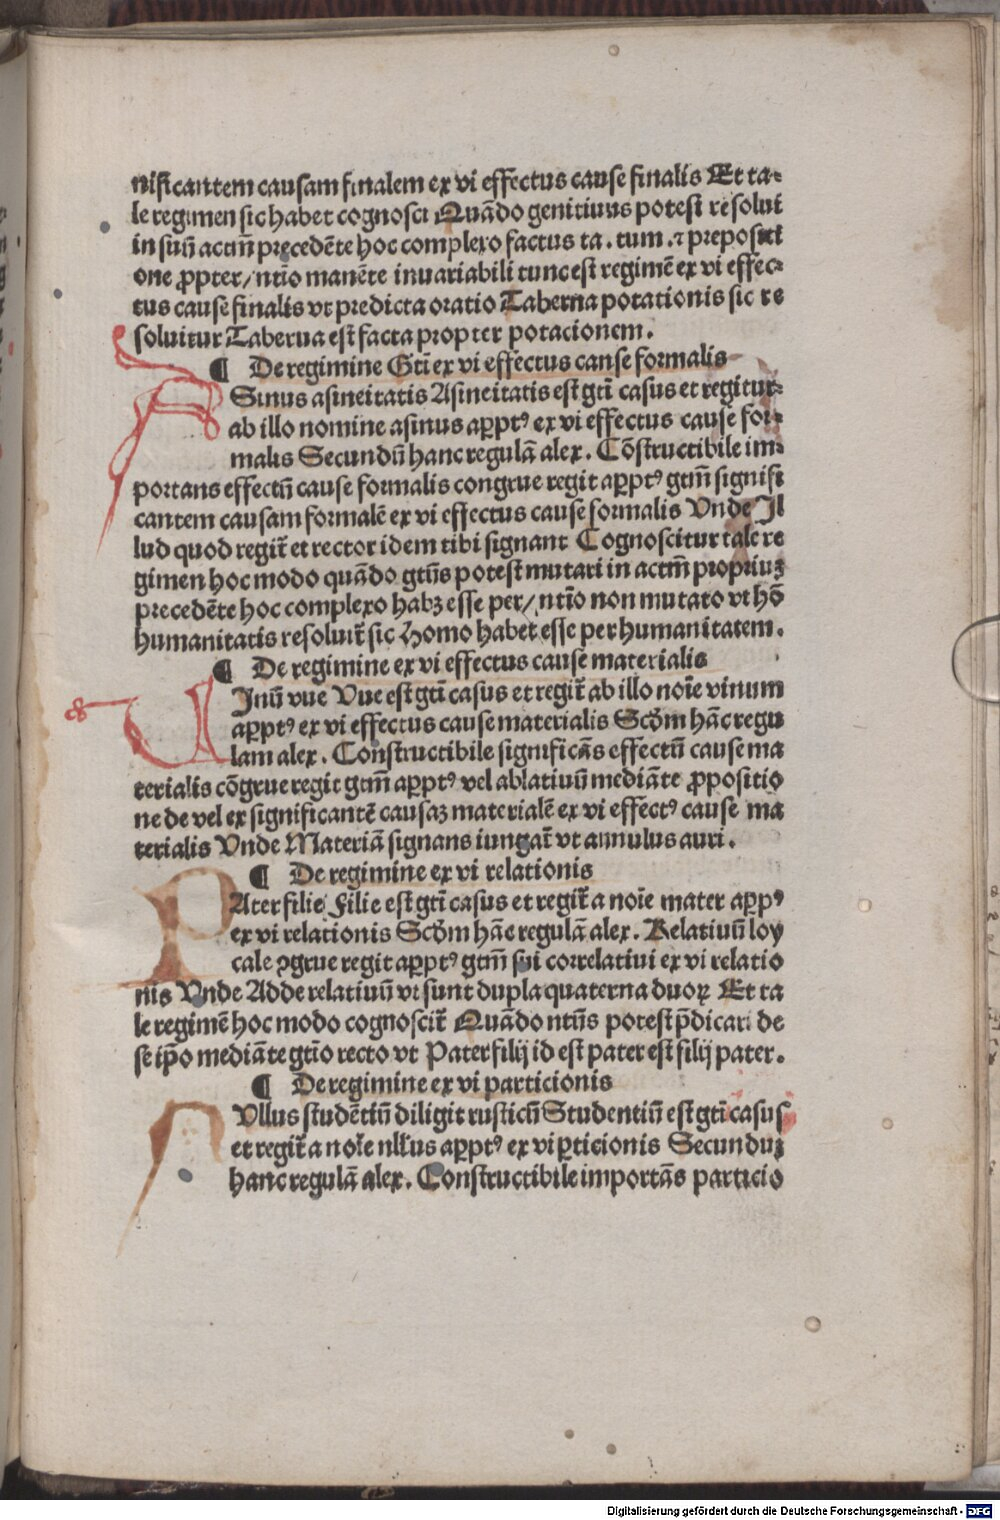 nificantem causam finalem ex vi effectus cause finalis Et ta-
le regimen sic habet cognosci Quādo genitiuus potest resolui
in suū actm̄ precedēte hoc complexo factus ta. tum. ⁊ prepositi
one ꝓpter/ ntīo manēte inuariabili tunc est regimē ex vi effec-
tus cause finalis vt predicta oratio Taberna potationis sic re
soluitur Taberua est facta propter potacionem.
¶ De regimine Gti ex vi effectus canse formalis
ASinus asineitatis Asineitatis est gtī casus et regitur-
ab illo nomine asinus aꝓptꝰ ex vi effectus cause for-
malis Secundū hanc regulā alex. Cōstructibile im-
portans effectū cause formalis congrue regit aꝓptꝰ gtm̄ signifi
cantem causam formalē ex vi effectus cause formalis Vnde Il
lud quod regit̄ et rector idem tibi signant Cognoscitur tale re
gimen hoc modo quādo gtūs potest mutari in actm̄ propriuꝫ
precedēte hoc complexo habꝫ esse per/ ntīo non mutato vt hō
humanitatis resoluit̄ sic Homo habet esse per humanitatem.
¶ De regimine ex vi effectus cause materialis
VInū vue Vue est gtī casus et regit̄ ab illo noīe vinum
aꝓptꝰ ex vi effectus cause materialis Scd̄m hāc regu
lam alex. Constructibile significās effectū cause ma
terialis cōgrue regit gtm̄ aꝓptꝰ vel ablatiuū mediāte ꝓpositio
ne de vel ex significantē causaꝫ materialē ex vi effectꝰ cause ma
terialis Vnde Materiā signans iungat̄ vt annulus auri.
¶ De regimine ex vi relationis
PAter filie Filie est gtī casus et regit̄ a noīe mater aꝓpꝰ
ex vi relationis Scd̄m hāc regulā alex. Relatiuū loy
cale ꝯgrue regit aꝓptꝰ gtm̄ sui correlatiui ex vi relatio
nis Vnde Adde relatiuū vt sunt dupla quaterna duoꝝ Et ta
le regimē hoc modo cognoscit̄ Quādo ntūs potest p̄dicari de
se ip̄o mediāte gtīo recto vt Pater filij id est pater est filij pater.
¶ De regimine ex vi particionis
NVllus studētiū diligit rusticū Studentiū est gtī casus
et regit̄ a noīe nllus aꝓptꝰ ex vi ꝑticionis Secunduꝫ
hanc regulā alex. Constructibile importās particio
Digitalisierung gefördert durch die Deutsche Forschungsgemeinschaft - DFG